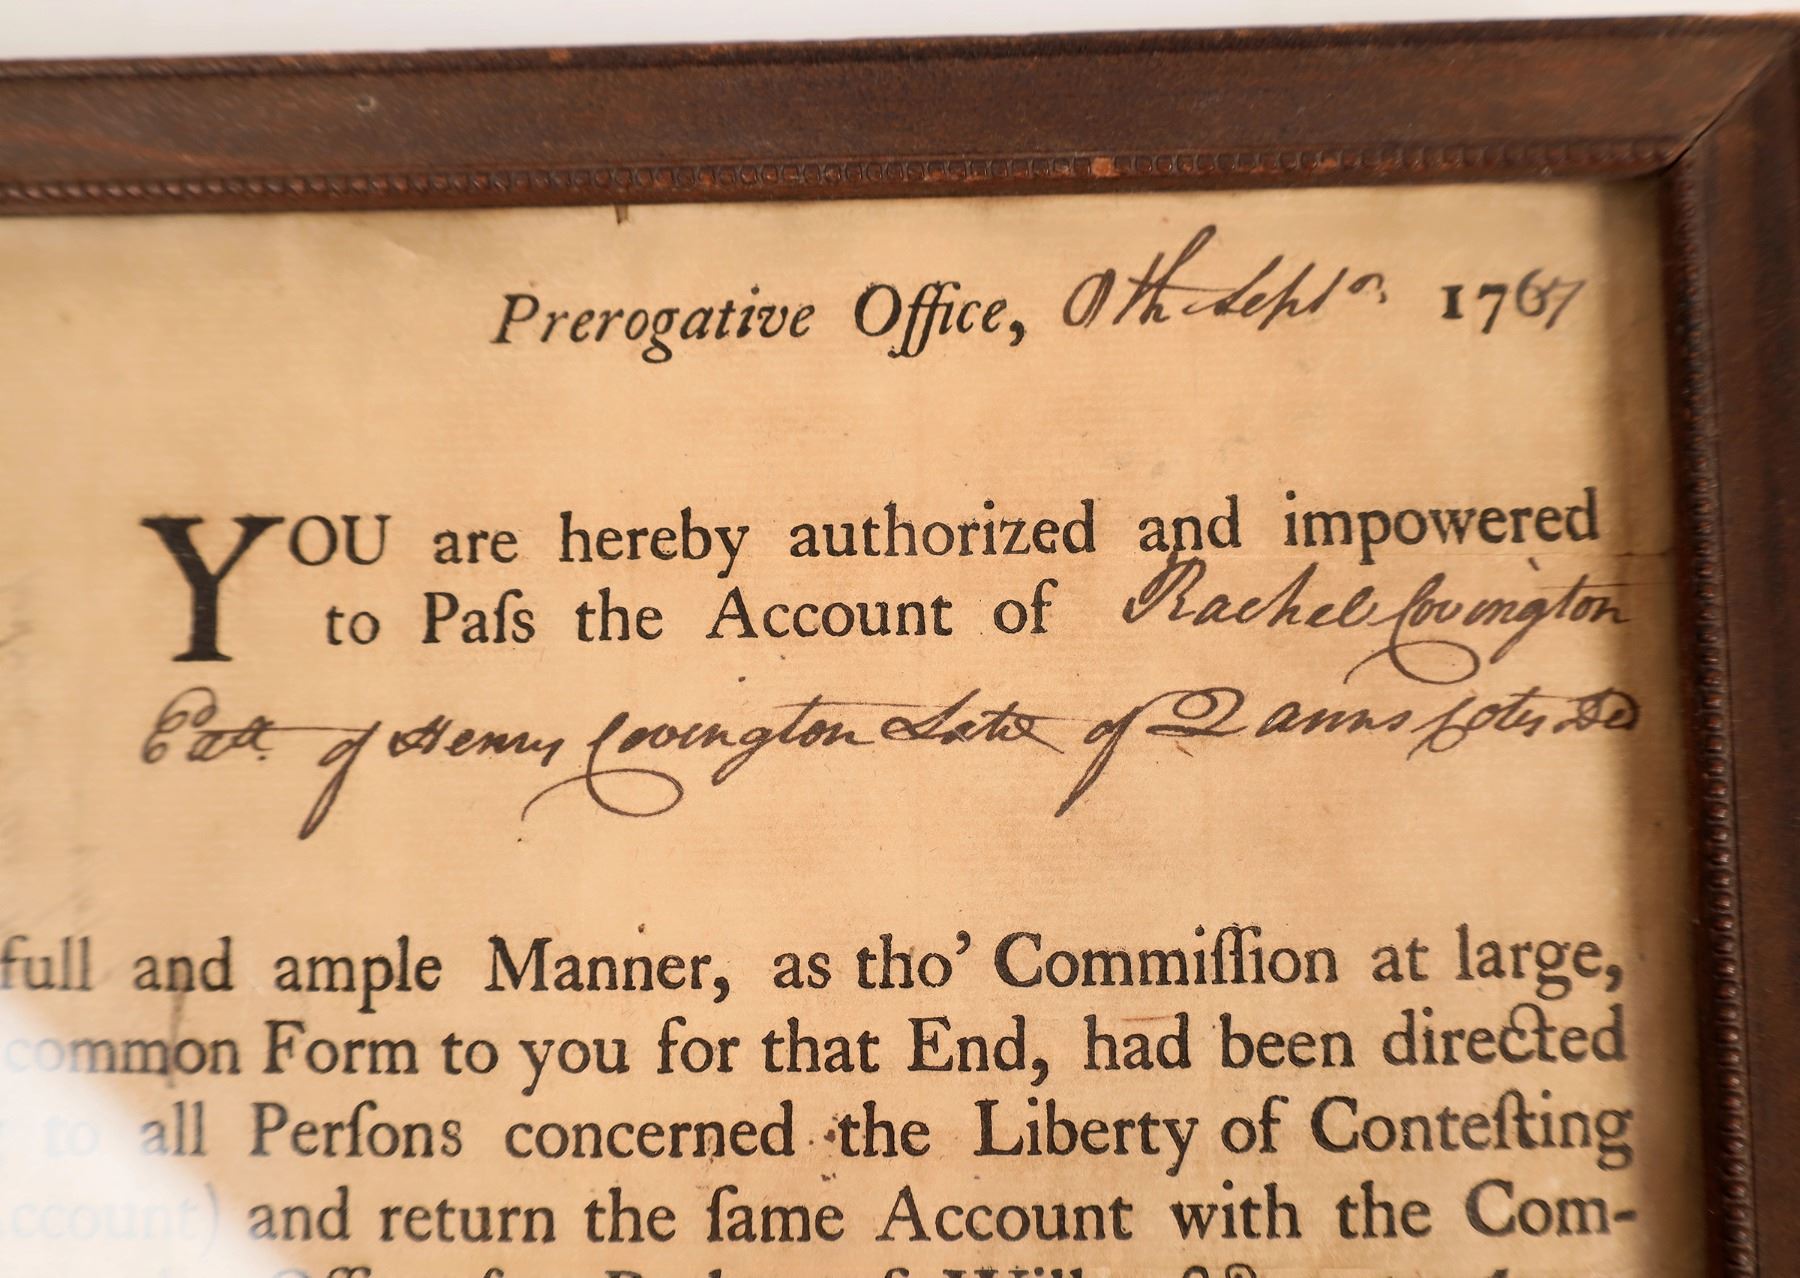 Prerogative Office, th Sept.r 1767
YOU are hereby authorized and impowered
to Paſs the Account of Rachel Covington
of Henry Covington Late of
full and ample Manner, as tho' Commiſſion at large,
common Form to you for that End, had been directed
to all Perſons concerned the Liberty of Conteſting
Account) and return the ſame Account with the Com-